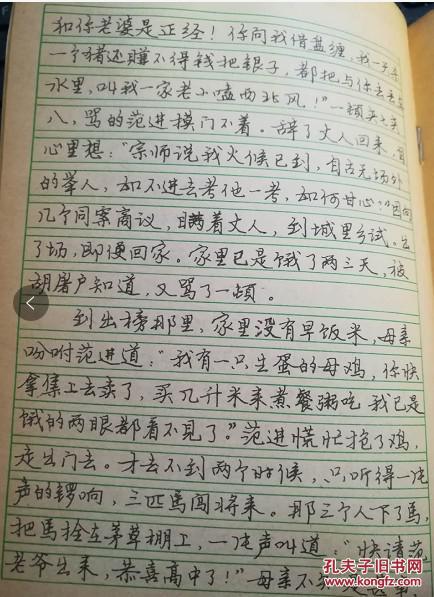 和你老婆是正经！你问我借盘缠，我一天杀
一个猪还赚不得钱把银子，都把与你去丢在
水里，叫我一家老小嗑西北风！”一顿夹七夹
八，骂的范进摸门不着。辞了丈人回来，自
心里想：“宗师说我火候已到，自古无场外
的举人，如不进去考他一考，如何甘心？”因向
几个同案商议，瞒着丈人，到城里乡试。出
了场，即便回家。家里已是饿了两三天，被
胡屠户知道，又骂了一顿。
到出榜那里，家里没有早饭米，母亲
吩咐范进道：“我有一只生蛋的母鸡，你快
拿集上去卖了，买几升米来煮餐粥吃 我已是
饿的两眼都看不见了”范进慌忙抱了鸡，
走出门去。才去不到两个时候，只听得一片
声的锣响，三匹馬闯将来。那三个人下了馬，
把馬拴在茅草棚上，一片声叫道：“快请范
老爷出来，恭喜高中了！”母亲不
孔夫子旧书网
www.kongfz.com